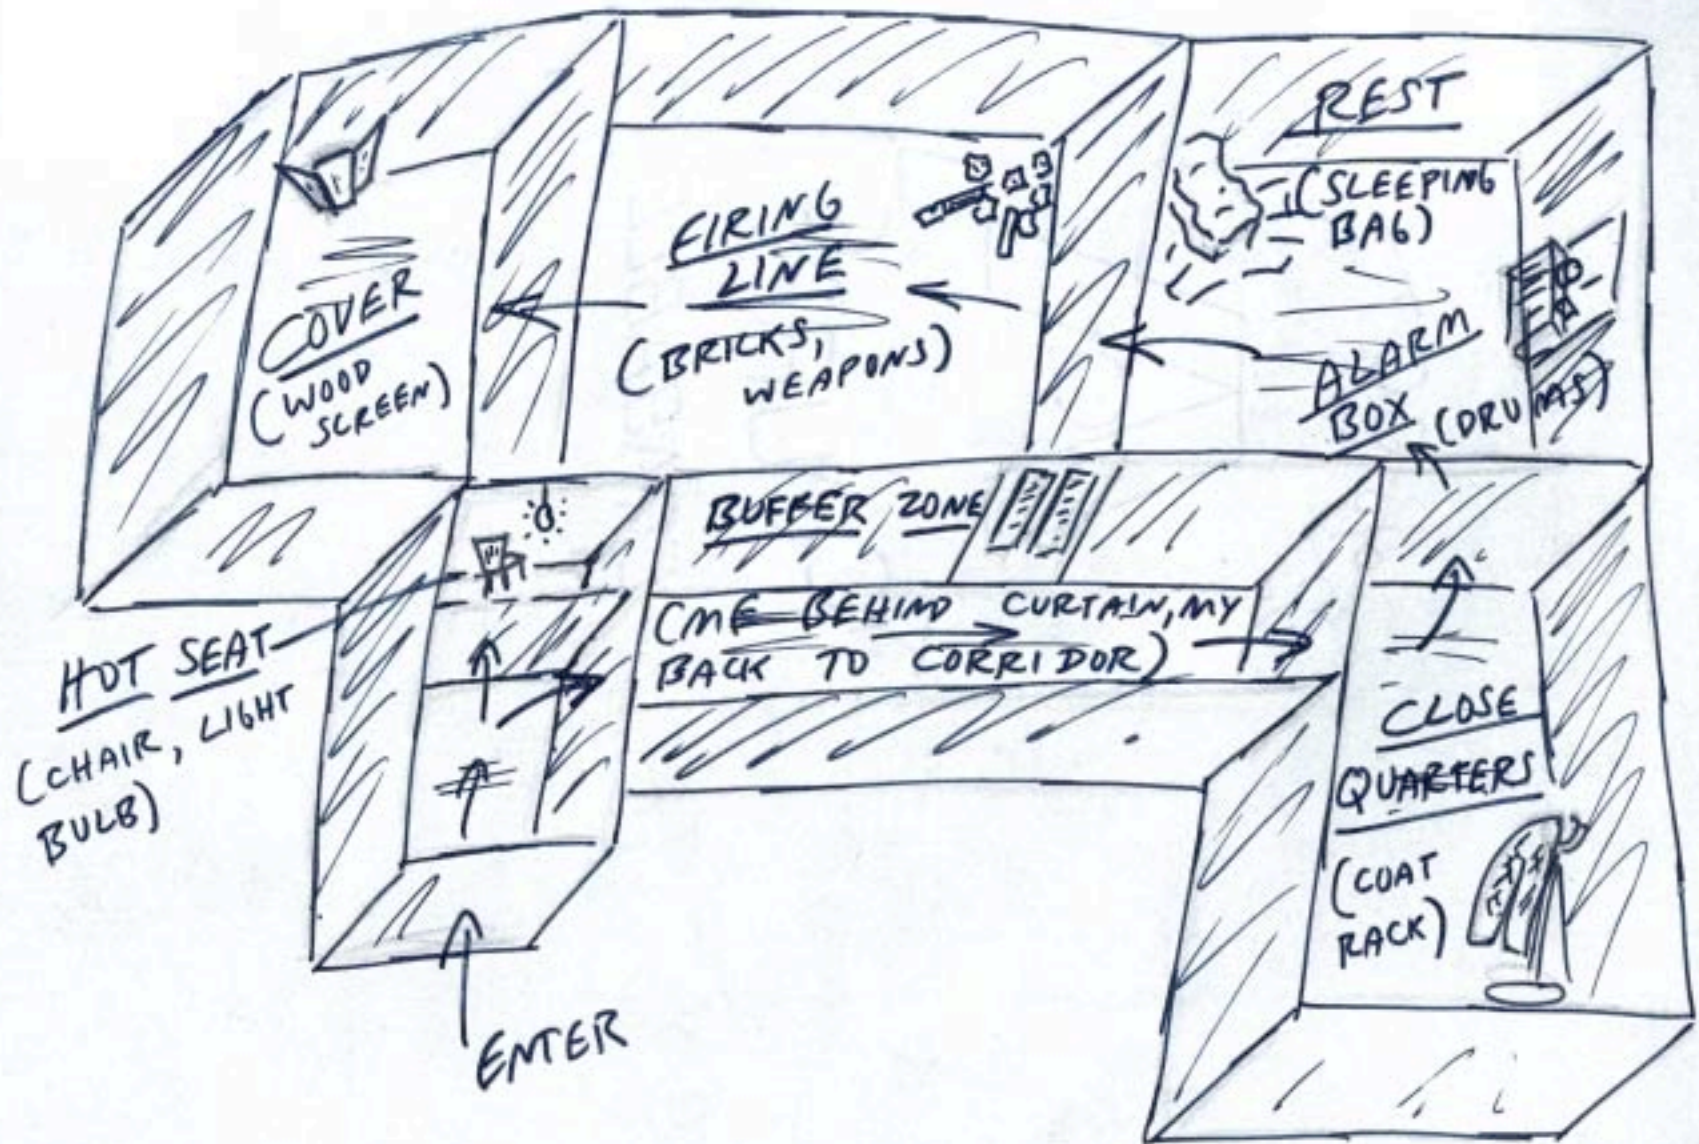 REST
(SLEEPING
BAG)
FIRING
LINE
(BRICKS,
WEAPONS)
COVER
(WOOD
SCREEN)
ALARM
BOX (DRUMS)
BUFFER ZONE
(ME BEHIND CURTAIN, MY
BACK TO CORRIDOR)
HOT SEAT
(CHAIR, LIGHT
BULB)
CLOSE
QUARTERS
(COAT
RACK)
ENTER